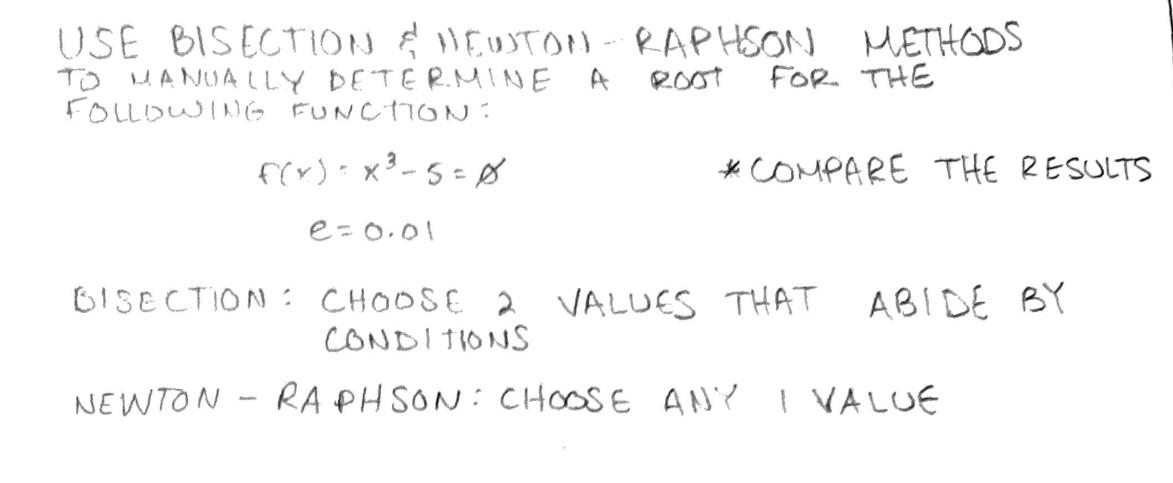 USE BISECTION & NEWTON - RAPHSON METHODS
TO MANUALLY DETERMINE A ROOT FOR THE
FOLLOWING FUNCTION:
f(x) = x³ - 5 = 0
* COMPARE THE RESULTS
e = 0.01
BISECTION: CHOOSE 2 VALUES THAT ABIDE BY
CONDITIONS
NEWTON - RAPHSON: CHOOSE ANY 1 VALUE